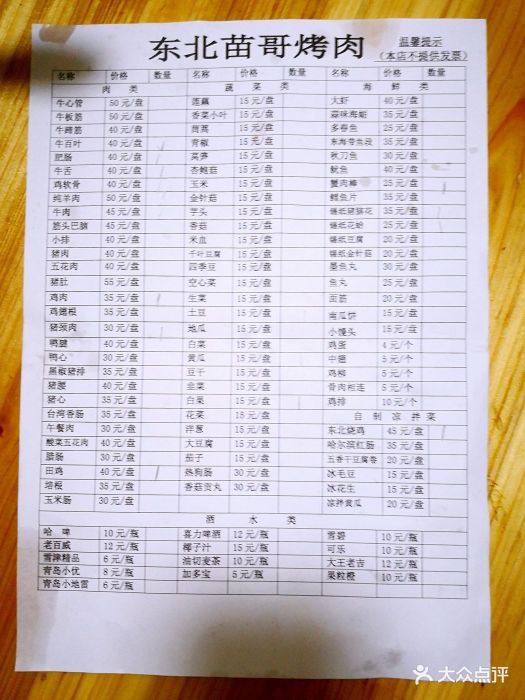 东北苗哥烤肉
温馨提示
（本店不提供发票）
名称 价格 数量 名称 价格 数量 名称 价格 数量
肉类 蔬菜类 海鲜类
牛心管 50元/盘 莲藕 15元/盘 大虾 40元/盘
牛板筋 50元/盘 香菜小叶 15元/盘 蒜味海蛎 35元/盘
牛蹄筋 40元/盘 茼蒿 15元/盘 多春鱼 25元/盘
牛百叶 40元/盘 青椒 15元/盘 东海带鱼段 35元/盘
肥肠 40元/盘 莴笋 15元/盘 秋刀鱼 30元/盘
牛舌 40元/盘 杏鲍菇 15元/盘 鱿鱼 40元/盘
鸡软骨 40元/盘 玉米 15元/盘 蟹肉棒 25元/盘
纯羊肉 50元/盘 金针菇 15元/盘 鳕鱼片 35元/盘
牛肉 45元/盘 芋头 15元/盘 锡纸猪脑花 35元/盘
筋头巴脑 45元/盘 香菇 15元/盘 锡纸花蛤 25元/盘
小排 40元/盘 米血 15元/盘 锡纸豆腐 20元/盘
猪肉 40元/盘 千叶豆腐 15元/盘 锡纸金针菇 20元/盘
五花肉 40元/盘 四季豆 15元/盘 墨鱼丸 30元/盘
猪肚 55元/盘 空心菜 15元/盘 鱼丸 25元/盘
鸡肉 35元/盘 生菜 15元/盘 面筋 20元/盘
鸡翅根 35元/盘 土豆 15元/盘 南瓜饼 15元/盘
猪颈肉 35元/盘 地瓜 15元/盘 小馒头 15元/盘
鸭腱 40元/盘 白菜 15元/盘 鸡蛋 4元/个
鸭心 30元/盘 黄瓜 15元/盘 中翅 5元/个
黑椒猪排 35元/盘 豆干 15元/盘 鸡柳 5元/个
猪腰 40元/盘 韭菜 15元/盘 骨肉相连 5元/个
猪心 35元/盘 白果 15元/盘 鸡排 10元/个
台湾香肠 35元/盘 花菜 15元/盘 自制凉拌菜
午餐肉 30元/盘 洋葱 15元/盘 东北烧鸡 45元/盘
酸菜五花肉 40元/盘 大豆腐 15元/盘 哈尔滨红肠 35元/盘
腊肠 30元/盘 茄子 15元/盘 五香干豆腐卷 20元/盘
田鸡 40元/盘 热狗肠 30元/盘 冰毛豆 15元/盘
培根 35元/盘 香菇贡丸 30元/盘 冰花生 15元/盘
玉米肠 30元/盘 凉拌黄瓜 20元/盘
酒水类
哈啤 10元/瓶 喜力啤酒 12元/瓶 雪碧 10元/瓶
老百威 12元/瓶 椰子汁 15元/瓶 可乐 10元/瓶
雪津精品 6元/瓶 油切麦茶 10元/瓶 大王老吉 12元/瓶
青岛小优 8元/瓶 加多宝 5元/瓶 果粒橙 10元/瓶
青岛小地雷 6元/瓶
大众点评